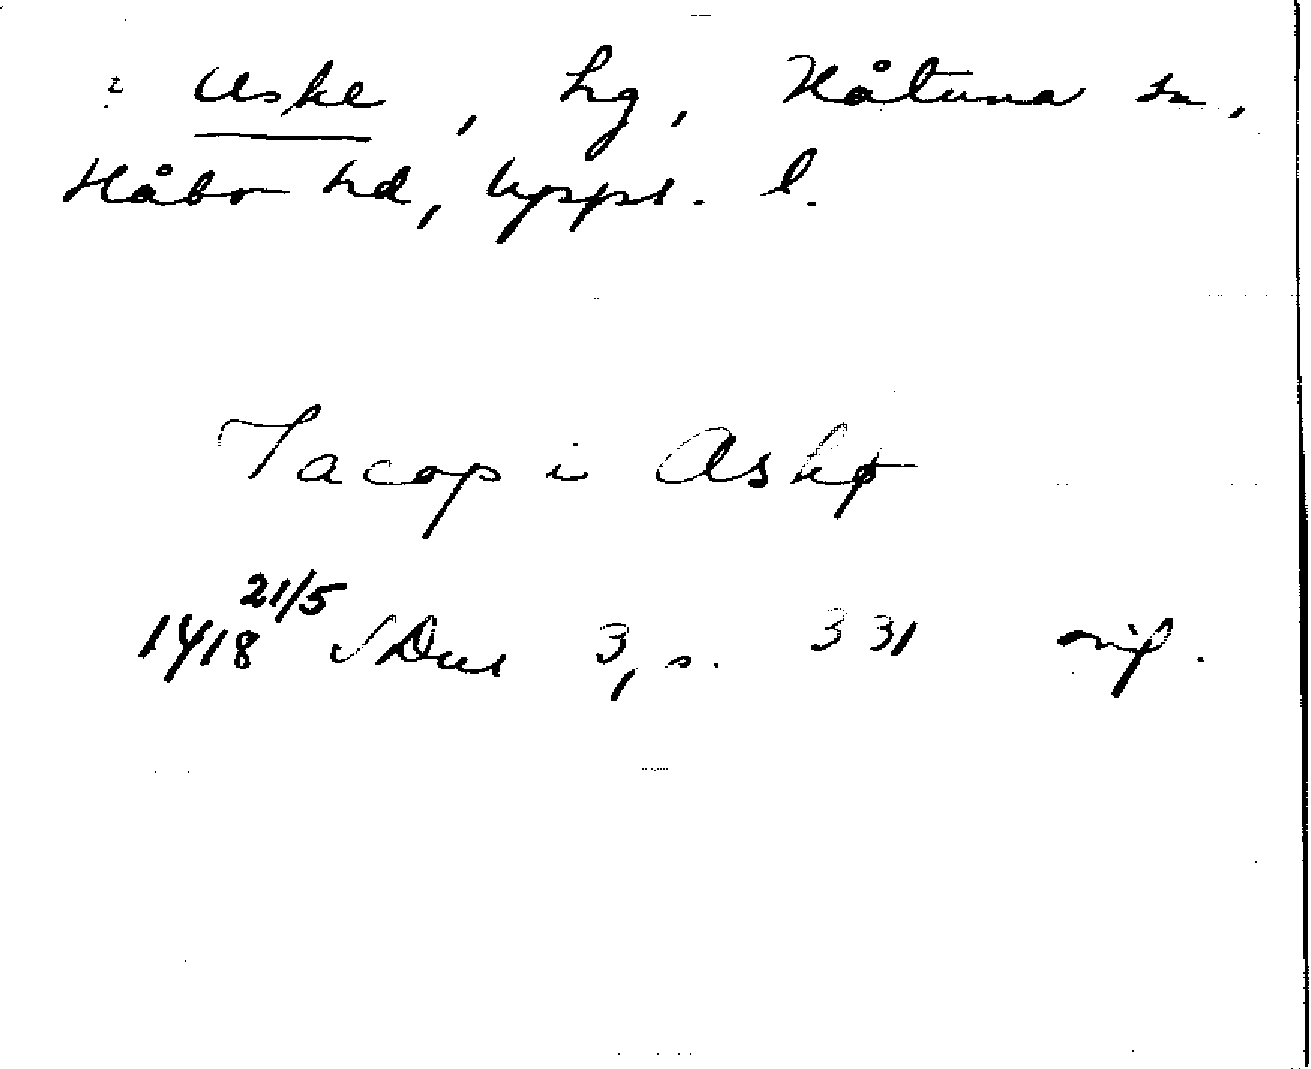 : Aske, hg, Håtuna sn,
Håbo hd, Upps. l.
Jacop i Askø
1418 21/5 SDns 3, s. 331 orig.